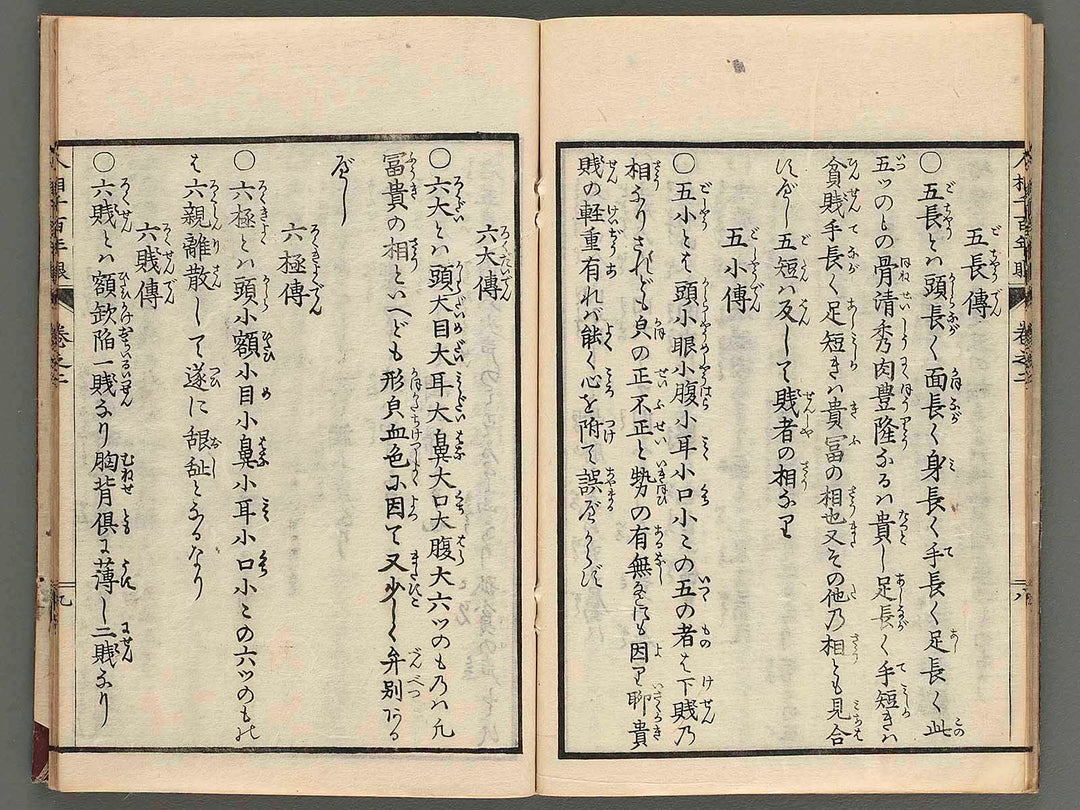 五長傳
〇五長とハ頭長く面長く身長く手長く足長く此
五ツのもの骨清秀肉豊隆なるハ貴し足長く手短きハ
貧賤手長く足短きハ貴冨の相也又その他乃相とも見合
すべし五短ハ反して賎者の相なり
五小傳
〇五小とは頭小眼小腹小耳小口小この五の者は下賎乃
相なりされども皃の正不正と勢の有無などにも因り聊貴
賎の軽重有れバ能く心を附て誤べからず
八
六大傳
〇六大とハ頭大目大耳大鼻大口大腹大六ツのものハ凡
冨貴の相といへども形皃血色に因て又少しく弁別ある
べし
六極傳
〇六極とハ頭小額小目小鼻小耳小口小この六ツのもの
は六親離散して遂に となるなり
六賎傳
〇六賎とハ額欽陥一賎なり胸背倶に薄し二賎なり
人相千百年眼
卷之二
九